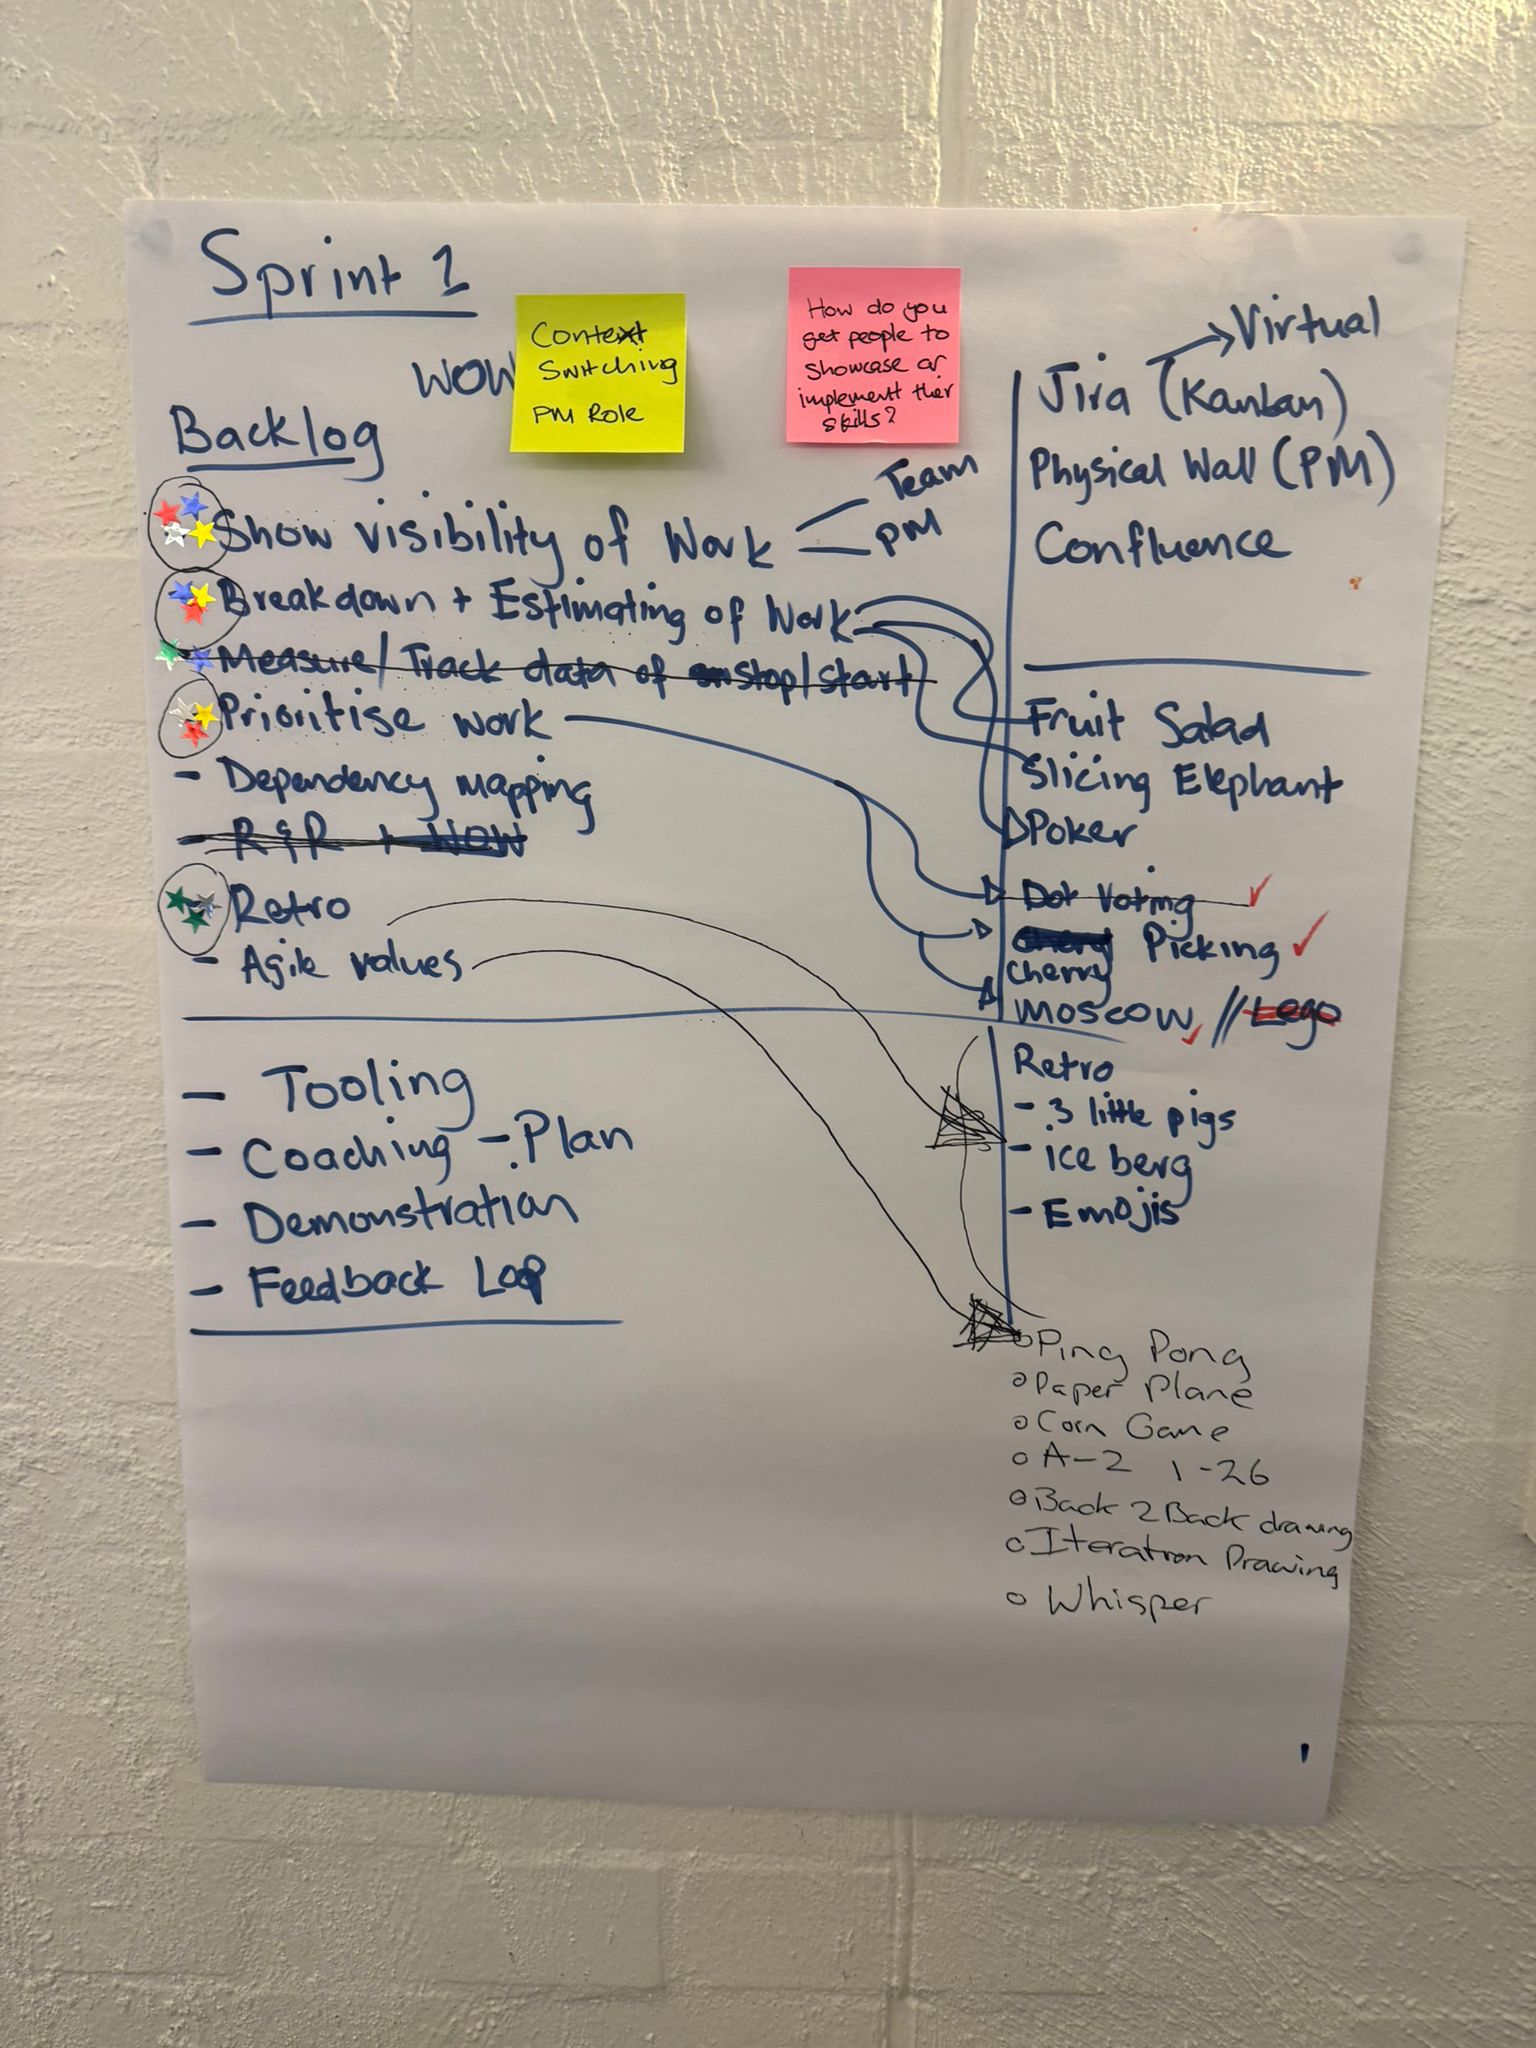 Sprint 1
WOW
Context
Switching
PM Role
How do you
get people to
showcase or
implement ther
skills?
Backlog
Show visibility of Work
Team
PM
Breakdown + Estimating of Work
Measure/Track data of stop/start
Prioritise work
- Dependency mapping
- R&R + WOW
Retro
- Agile values
- Tooling
- Coaching - Plan
- Demonstration
- Feedback Loop
Virtual
Jira (Kanban)
Physical Wall (PM)
Confluence
Fruit Salad
Slicing Elephant
Poker
Dot Voting
Picking
Cherry
Moscow // Lego
Retro
- 3 little pigs
- ice berg
- Emojis
Ping Pong
Paper Plane
Game
A-2 1-26
Back 2 Back drawing
Iteration Drawing
Whisper